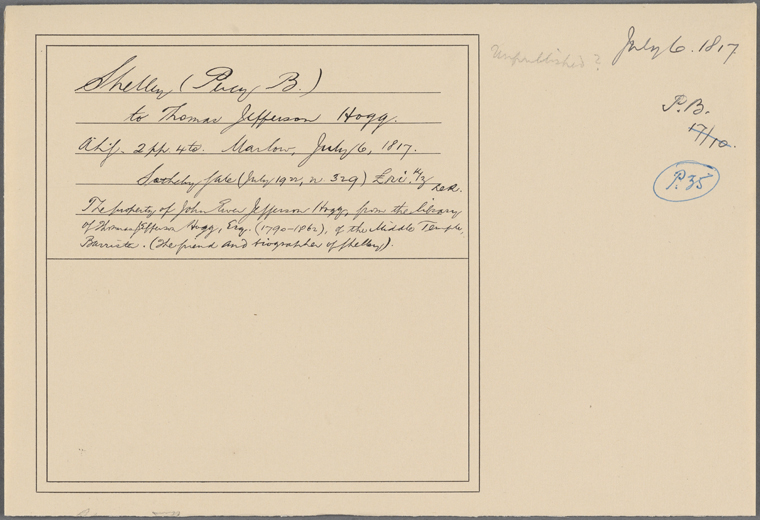 Unpublished?
July 6. 1817
Shelley (Percy B.)
to Thomas Jefferson Hogg.
2 pp 4to. Marlow, July 6, 1817.
Sotheby Sale (July 1922, n. 329)
The property of John Ewer Jefferson Hogg, from the library
of Thomas Jefferson Hogg, Esq. (1790-1862), of the Middle Temple,
Barrister. (The friend and biographer of Shelley).
P.B.
17/10.
P.35